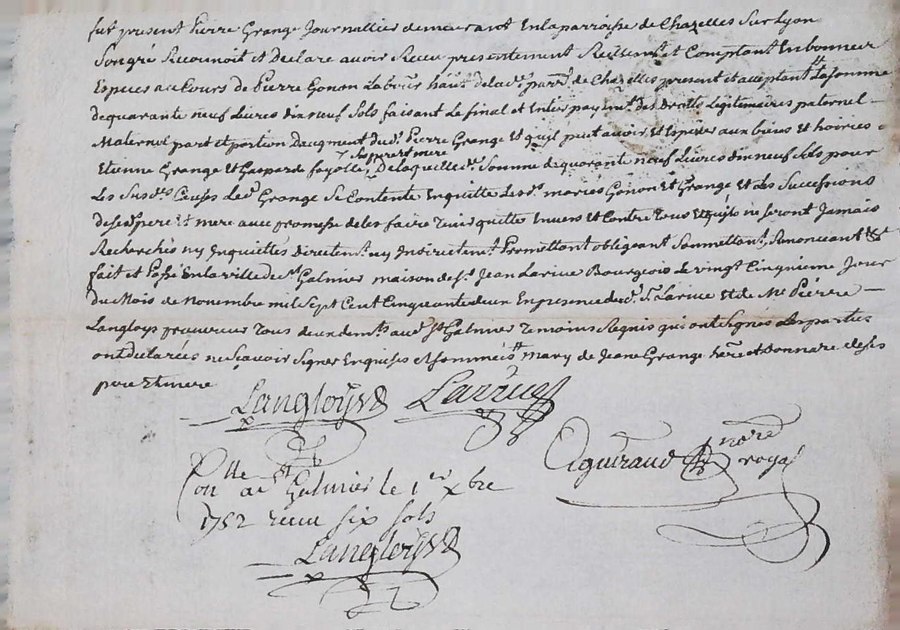 fut présent Pierre Grange Journallier demeurant En la parroisse de Chazelles Sur Lyon
Son gré Reconnoit et Declare avoir Receu presentement Reellemt et Comptant En bonnes
Especes au Cours de Pierre Gonon Labour hant de lad parr de Chazelles present et acceptant La somme
de quarante neuf Livres dix neuf Sols faisant Le final et Entier payemt des droits Legitimaires paternel
Maternel part et portion Daugment dud Pierre Grange Et quil peut avoir et Esperer aux biens et hoiries
Etienne Grange et Gasparde fayolle ses pere et mere De laquelle de Somme de quarante neuf Livres dix neuf Sols pour
Les Susdes Causes Led Grange Se Contente En quitte Lesds mariés Gonon Et Grange Et Les Successions
de sesds pere et mere avec promesse de les faire Tenir quittes Envers et Contre Tous Et quils ne seront Jamais
Recherchés ny Inquiettés directemt ny Indirectemt Promettant obligeant Soumettant Renonceant &
fait et Passé En la ville de St Galmier maison de Sr Jean Larive Bourgeois Le vingt Cinquieme Jour
Du Mois de Novembre mil Sept Cent Cinquante deux En presence dud Sr Larive et de Me Pierre
Langloys procureur Tous deux demts aud St Galmier Temoins Requis qui ont Signés Les parties
ont declarées ne Sçavoir Signer Enquises et Sommées mary de Jeane Grange here et donnare de ses
pere Et mere
Langloys Larive
Aguiraud nore royal
Conlle a St Galmier le 1er xbre
1752 receu six sols
Langloys